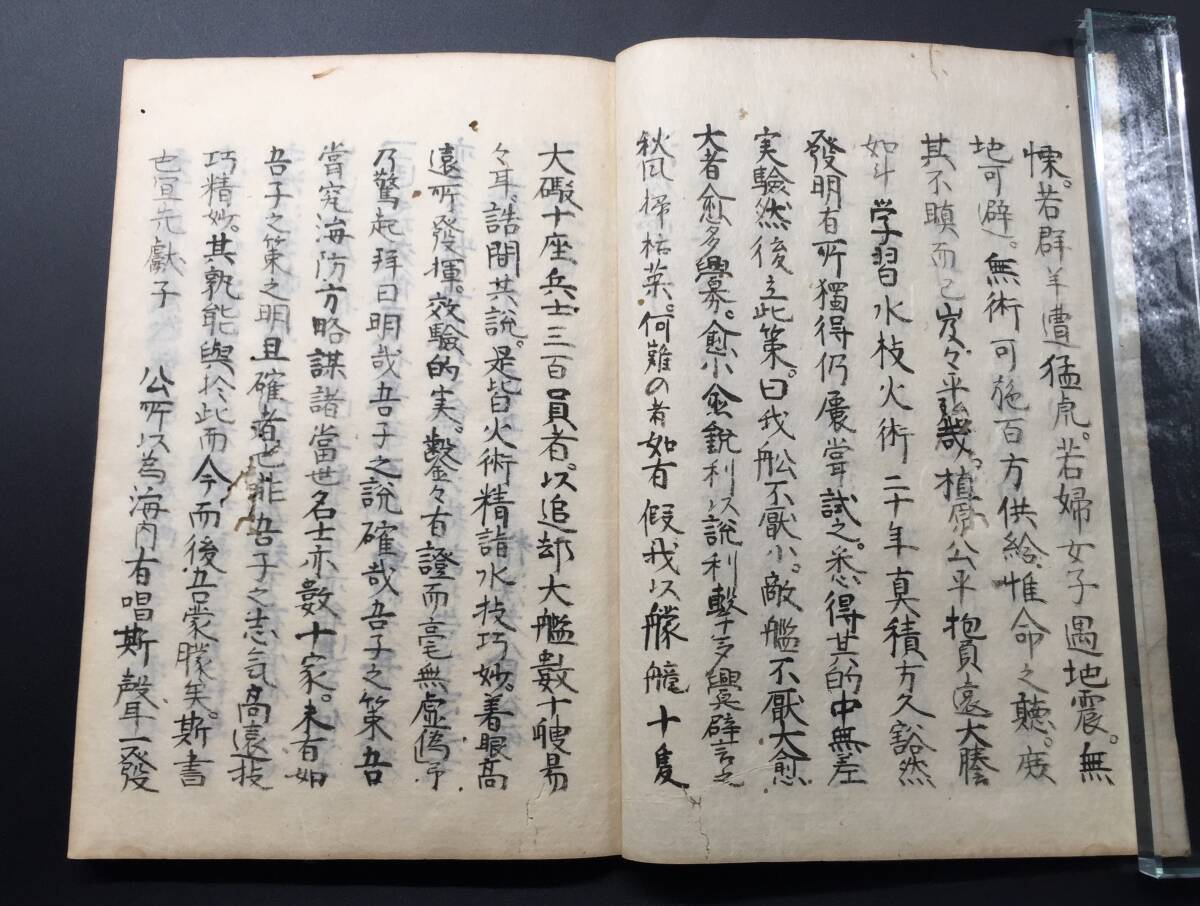 悚。若群羊遭猛虎。若婦女子遇地震。無
地可避。無術可施百方供給惟命之聽。庻
其不瞋而已岌々乎殆哉。植原公平抱負遠大膽
如斗学習水技火術二十年真積方久豁然
發明有所獨得仍屢嘗試之。悉得其的中無差
実驗然後立此策。曰我舩不厭小。敵艦不厭大愈
大者愈多興募。愈小愈銳利以說利擊多興辟言之
秋風掃枯葉。何難の有如有假我以艨艟十隻
大礮十座兵士三百員者。以追却大艦数十艘易
々耳。詰間其説。是皆火術精詣水技巧妙。着眼高
遠所發揮。效驗的実。鑿々有證而毫無虚偽予
乃驚起拜曰明哉吾子之説確哉吾子之策吾
嘗究海防方略謀諸當世名士亦数十家。未有如
吾子之策之明且確者也非吾子之志気高遠技
巧精妙。其孰能與於此而今而後吾蒙朦矣。斯書
也宜先獻子
公所以為海内有唱斯聲一發